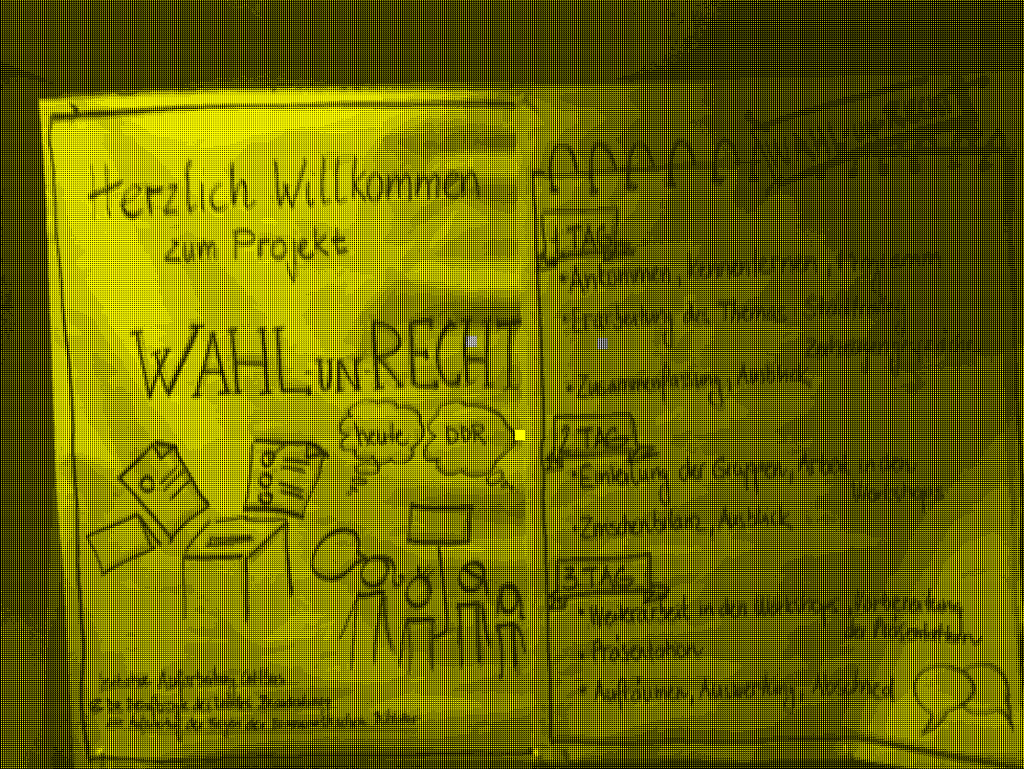 Herzlich Willkommen
zum Projekt
WAHL-UN-RECHT
heute
DDR
WAHL-UN-RECHT
1 TAG
• Ankommen, Kennenlernen, Programm
• Erarbeitung des Themas
• Zusammenfassung, Ausblick
2 TAG
• Einteilung der Gruppen, Arbeit in den
Workshops
• Zwischenbilanz, Ausblick
3 TAG
• Weiterarbeit in den Workshops, Vorbereitung
der Präsentation
• Präsentation
• Aufräumen, Auswertung, Abschied